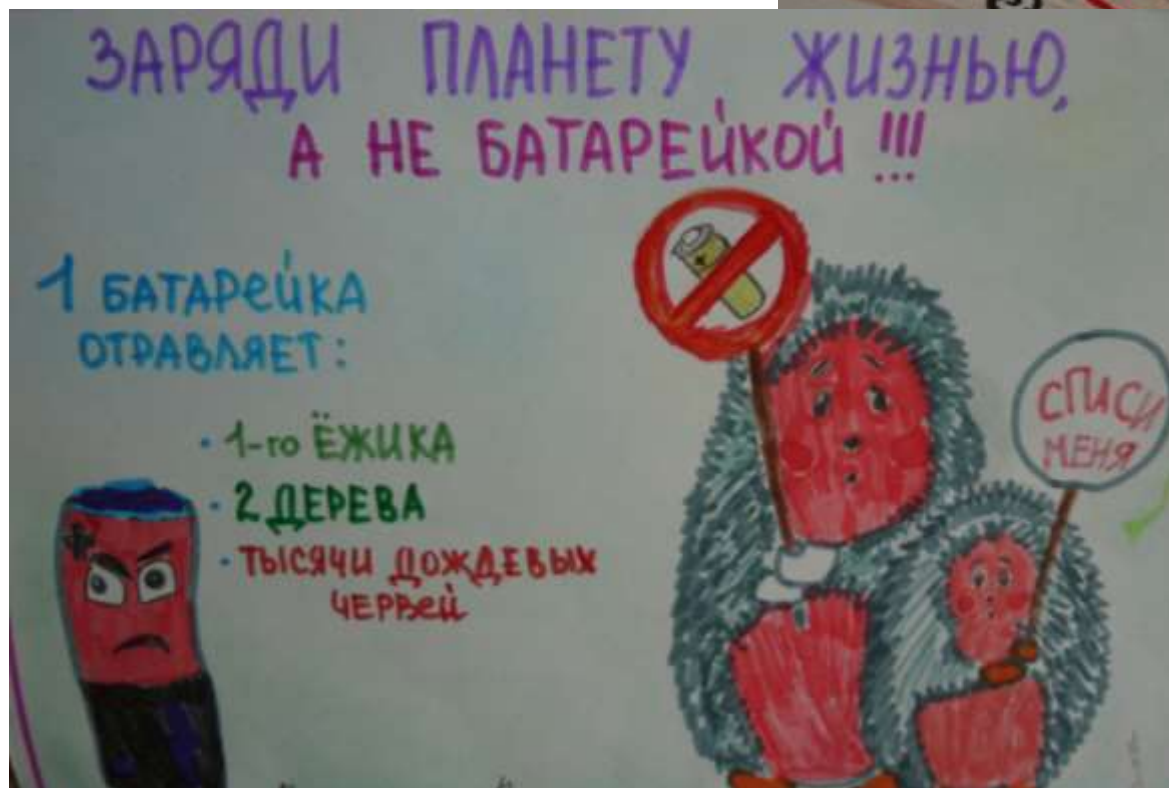 ЗАРЯДИ ПЛАНЕТУ ЖИЗНЬЮ,
А НЕ БАТАРЕЙКОЙ !!!
1 БАТАРЕЙКА
ОТРАВЛЯЕТ:
· 1-го ЁЖИКА
· 2 ДЕРЕВА
· ТЫСЯЧИ ДОЖДЕВЫХ
ЧЕРВЕЙ
СПИСИ
МЕНЯ